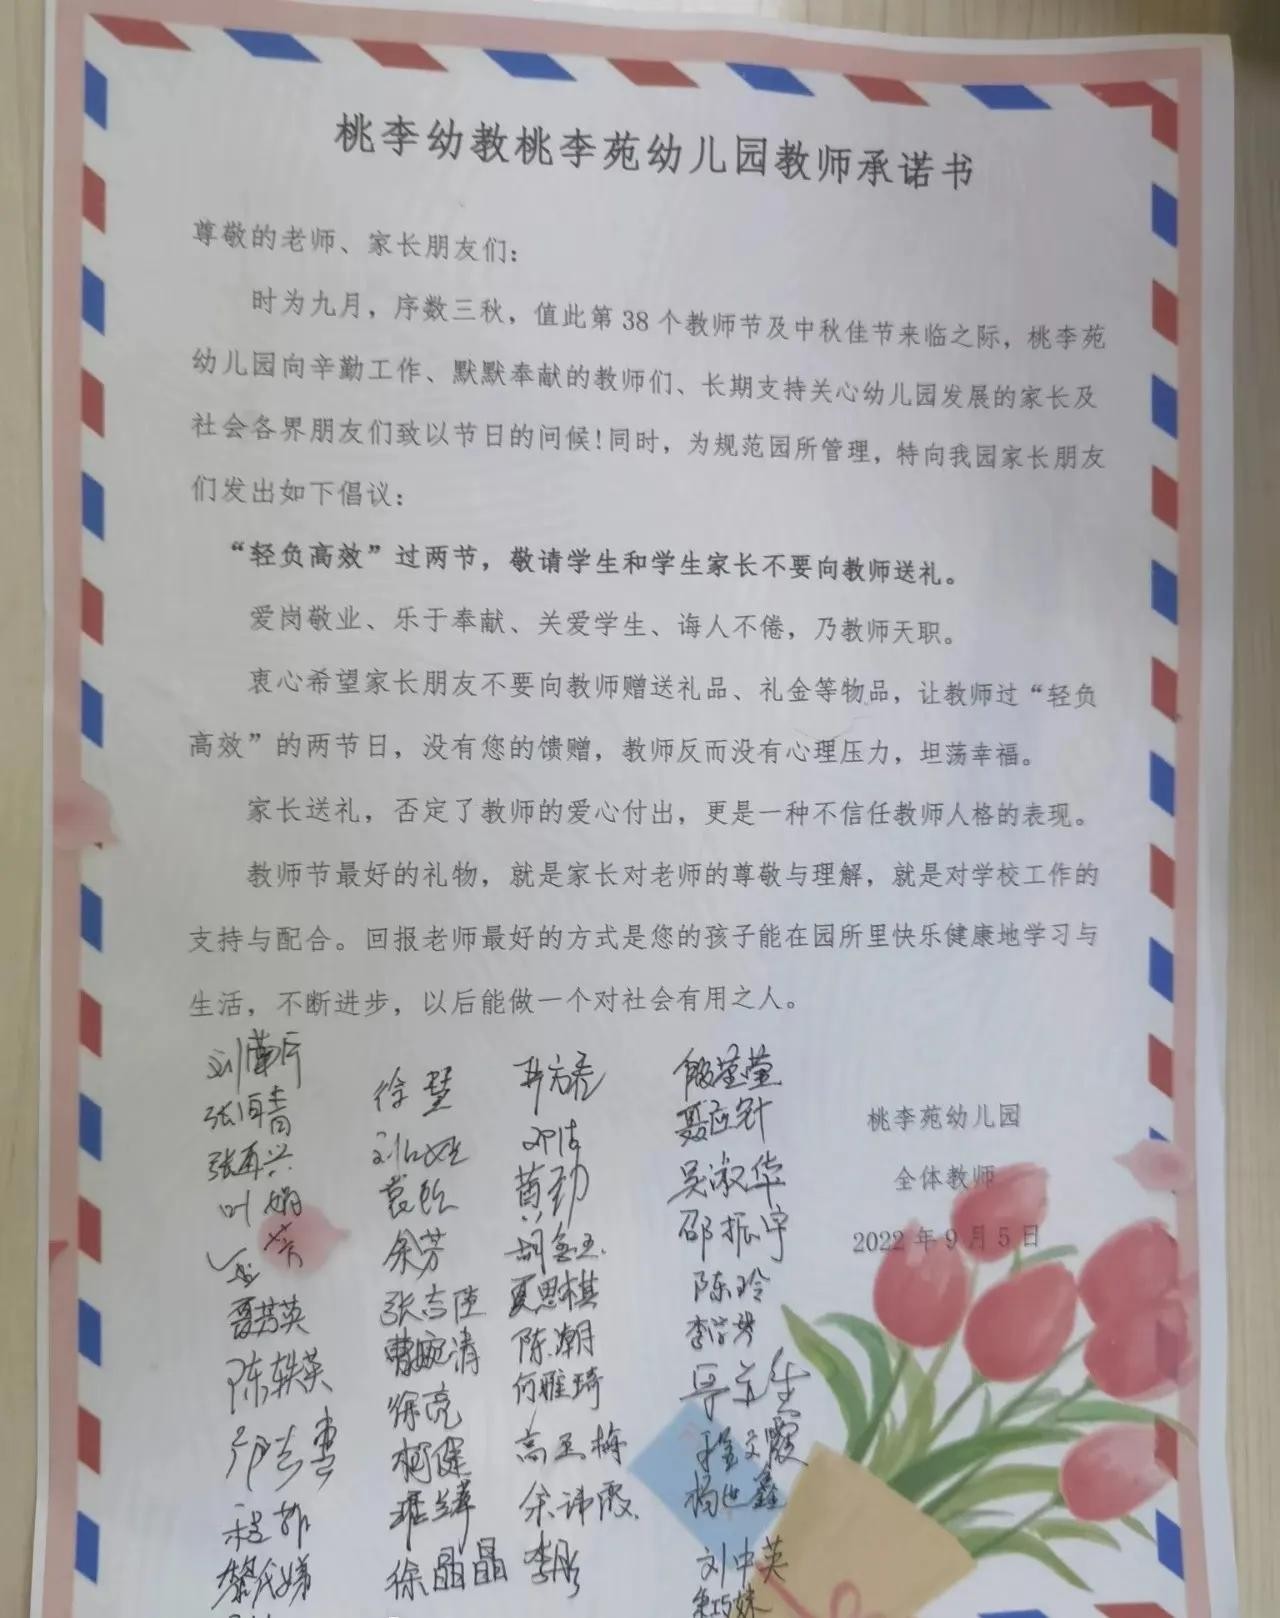 桃李幼教桃李苑幼儿园教师承诺书
尊敬的老师、家长朋友们：
时为九月，序数三秋，值此第38个教师节及中秋佳节来临之际，桃李苑
幼儿园向辛勤工作、默默奉献的教师们、长期支持关心幼儿园发展的家长及
社会各界朋友们致以节日的问候!同时，为规范园所管理，特向我园家长朋友
们发出如下倡议：
“轻负高效”过两节，敬请学生和学生家长不要向教师送礼。
爱岗敬业、乐于奉献、关爱学生、诲人不倦，乃教师天职。
衷心希望家长朋友不要向教师赠送礼品、礼金等物品，让教师过“轻负
高效”的两节日，没有您的馈赠，教师反而没有心理压力，坦荡幸福。
家长送礼，否定了教师的爱心付出，更是一种不信任教师人格的表现。
教师节最好的礼物，就是家长对老师的尊敬与理解，就是对学校工作的
支持与配合。回报老师最好的方式是您的孩子能在园所里快乐健康地学习与
生活，不断进步，以后能做一个对社会有用之人。
桃李苑幼儿园
全体教师
2022年9月5日
张再兴
叶娟
聂芳英
陈轶英
徐慧
袁欣
余芳
曹婉清
徐亮
柯健
徐晶晶
黄劲
夏思棋
陈潮
何雅琦
高玉梅
余诗霞
李彤
吴淑华
邵振宇
陈玲
杨世鑫
刘中英